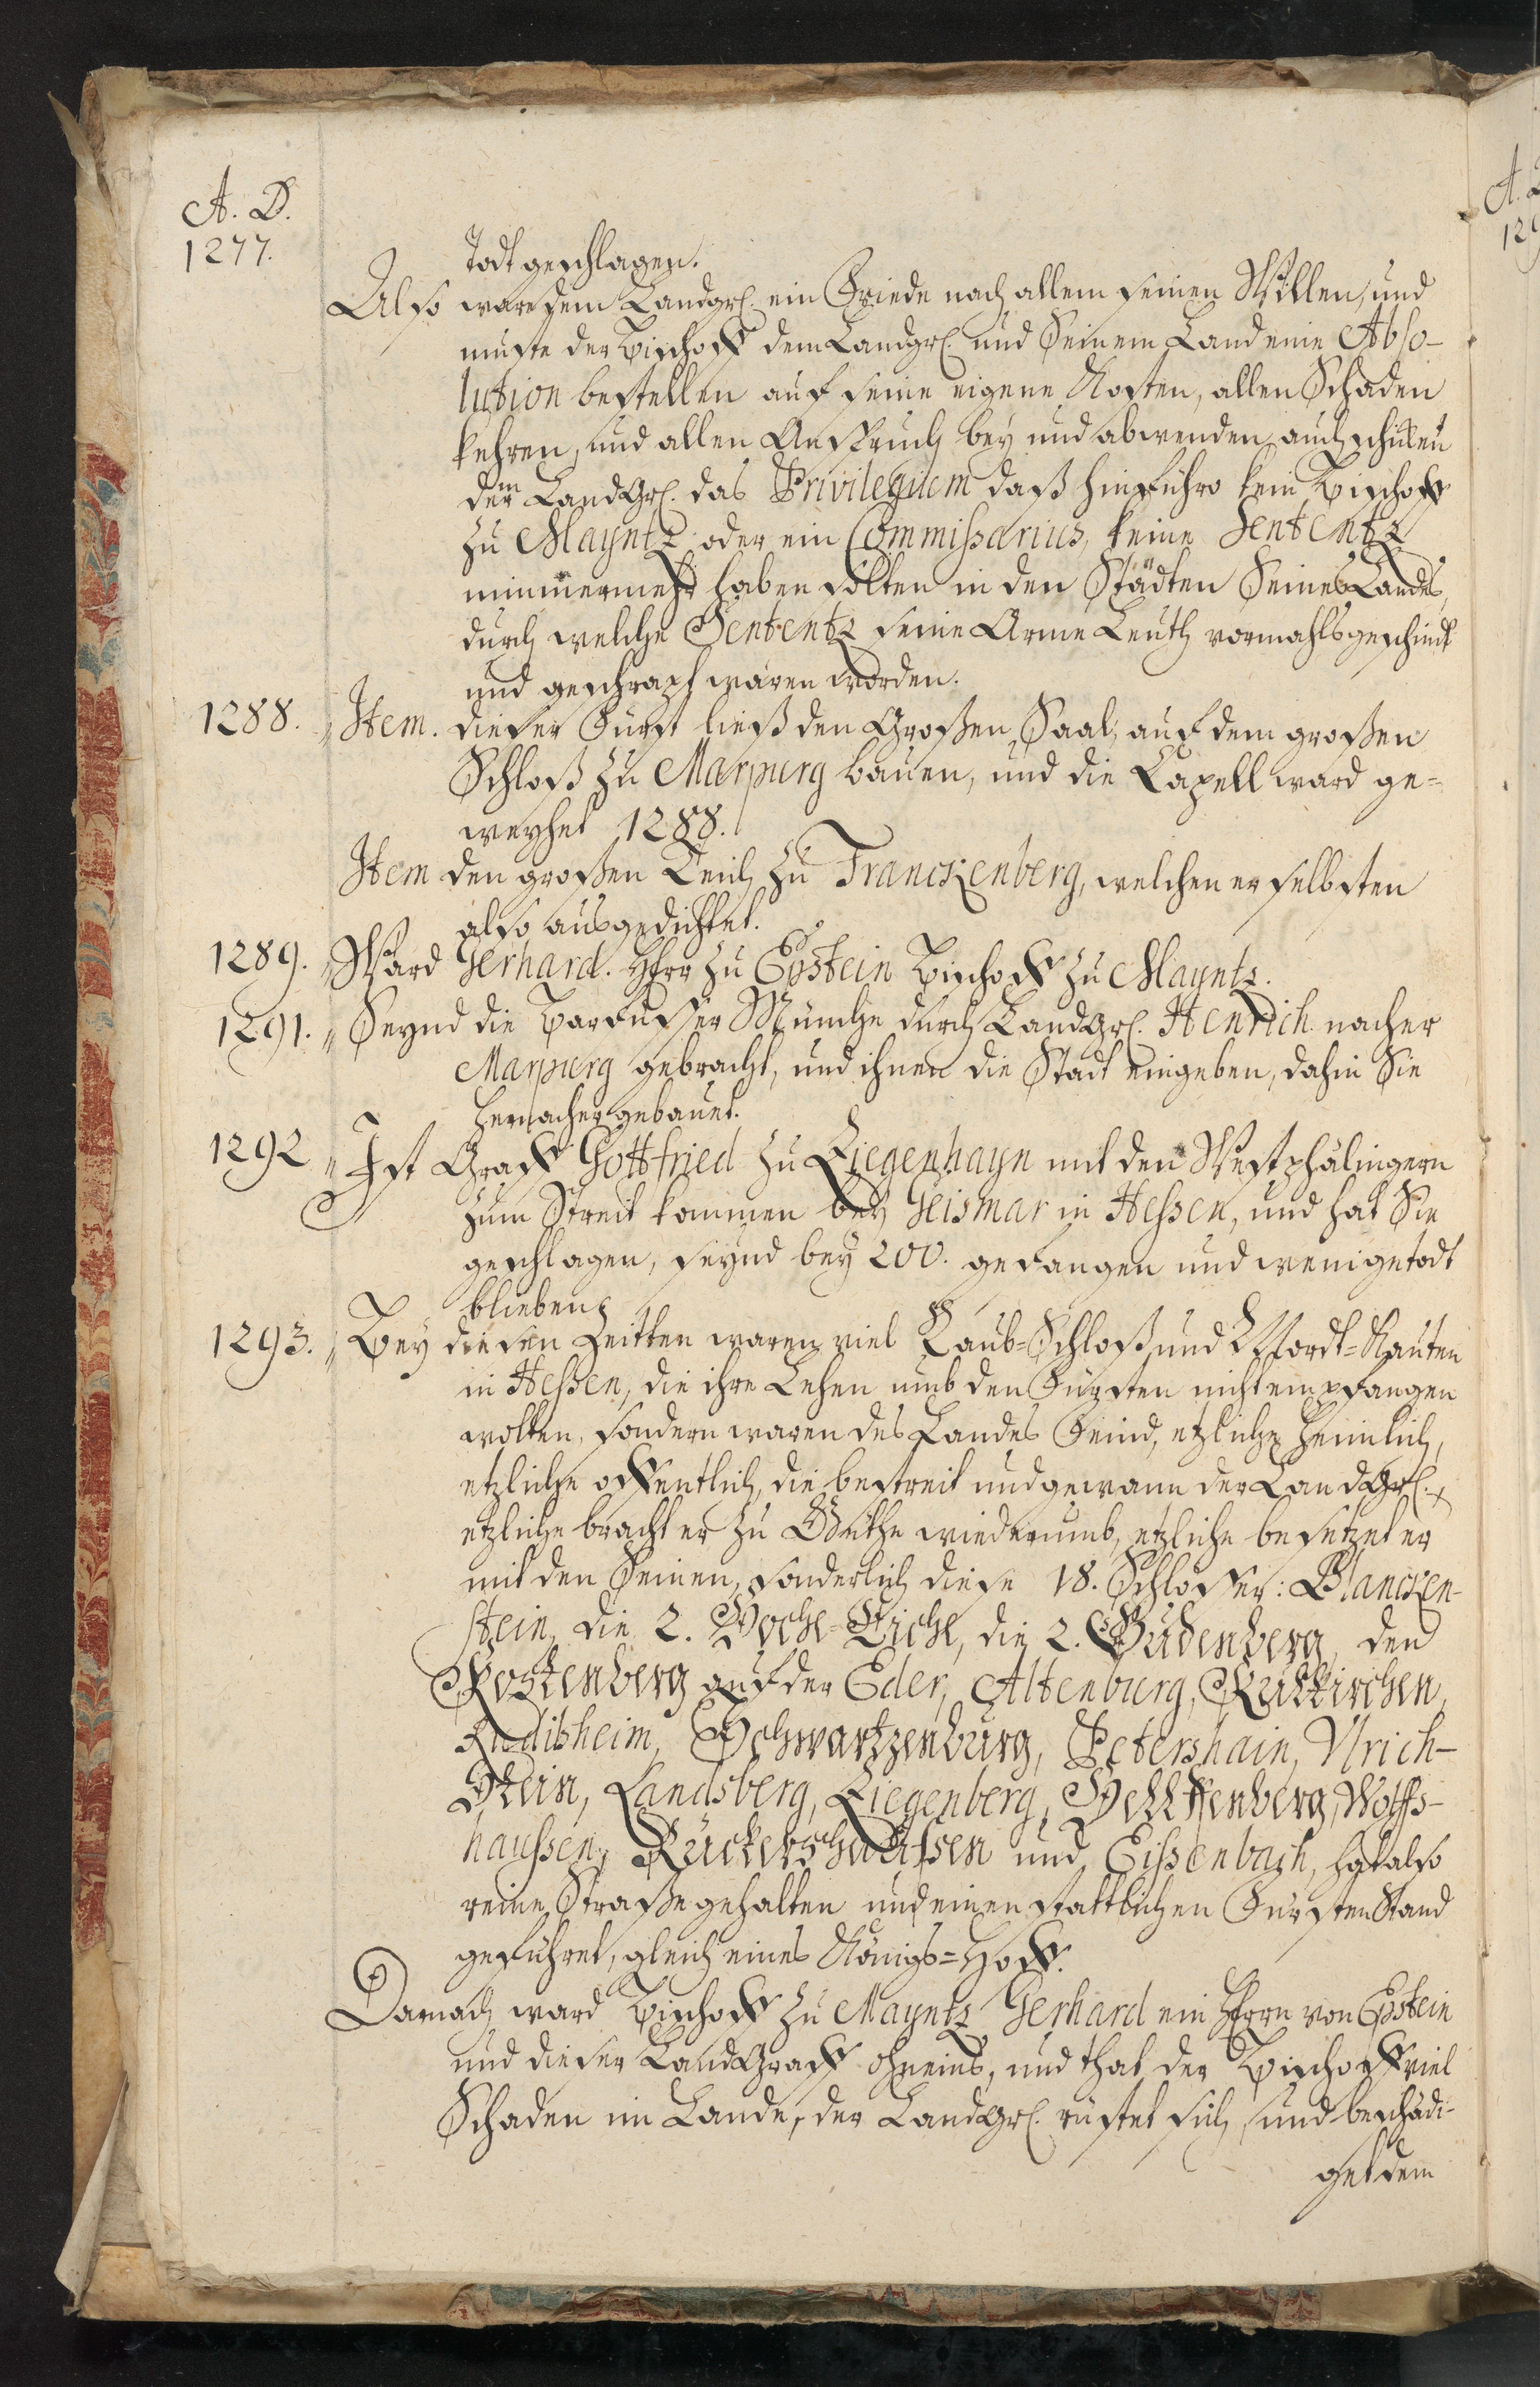 A. D.
1277.
Todt geschlagen.
Also ware dem Landgr. ein Friede nach allem seinen Willen, und
muste der Bischoff dem Landgr. und Seinem Land eine Abso-
lution bestellen auf seine eigene Kosten, allen Schaden
kehren, und allen Anspruch bey und abwenden, auch
dem LandGr. das Privilegium daß hinführo kein Bischoff
zu Mayntz oder ein Commissarius, keine Sententz
nimmermehr haben solten in den Städten Seines Lands,
durch welche Sententz seine Arme Leuth vormahls geschindt
und geschrapf waren worden.
1288. Item. dieser Fürst ließ den Großen Saal, auf dem großen
Schloß zu Marpurg bauen, und die Capell ward ge-
weyhet 1288.
Item den großen Teich zu Franckenberg, welchen er selbsten
also ausgedichtet.
1289. Ward Gerhard. Herr zu Epstein Bischoff zu Mayntz.
1291. Seynd die Barfusser Münche durch LandGr. Henrich nacher
Marpurg gebracht, und ihnen die Stadt eingeben, dahin Sie
hernacher gebauet.
1292 Ist Graff Gottfried zu Ziegenhayn mit den Westphälingern
zum Streit kommen bey Geismar in Hessen, und hat Sie
geschlagen, seynd bey 200. gefangen und wenige todt
blieben.
1293. Bey diesen Zeitten waren viel Raub-Schloß und Mordt-Kauten
in Hessen, die ihre Lehen umb den Fürsten nicht empfangen
wolten, sondern waren des Landes Feind, etzliche heimlich,
etzliche offentlich, die bestreit und gewann der LandGr.
etzliche bracht er zu Güthe wiederumb, etzliche besetzet er
mit den Seinen, sonderlich diese 18. Schlösser: Blancken-
stein, die 2. Hoche-Eiche, die 2. Gudenberg, den
Rostenberg auf der Eder, Altenburg, Rulkirchen,
Rudibheim, Schwartzenburg, Petershain, Ulrich-
Stein, Landsberg, Ziegenberg, Helffenberg, Wolffs-
haussen, Rückershaussen und Eissenbach, hat also
reine Straße gehalten und einen stattlichen Fürsten Stand
geführet, gleich eines Königs-Hoff.
Darnach ward Bischoff zu Mayntz Gerhard ein Herrn von Epstein
und dieser LandGraff ohneins, und that der Bischoff viel
Schaden im Lande, der LandGr. rüstet sich, und beschädi-
get dem